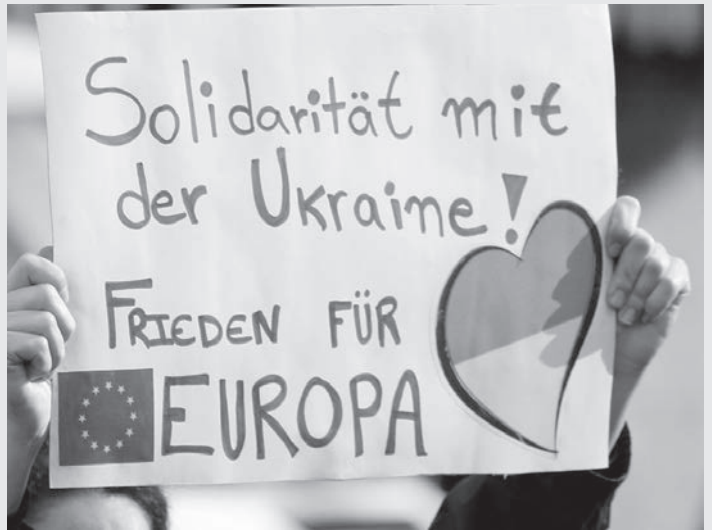 Solidarität mit
der Ukraine!
FRIEDEN FÜR
EUROPA